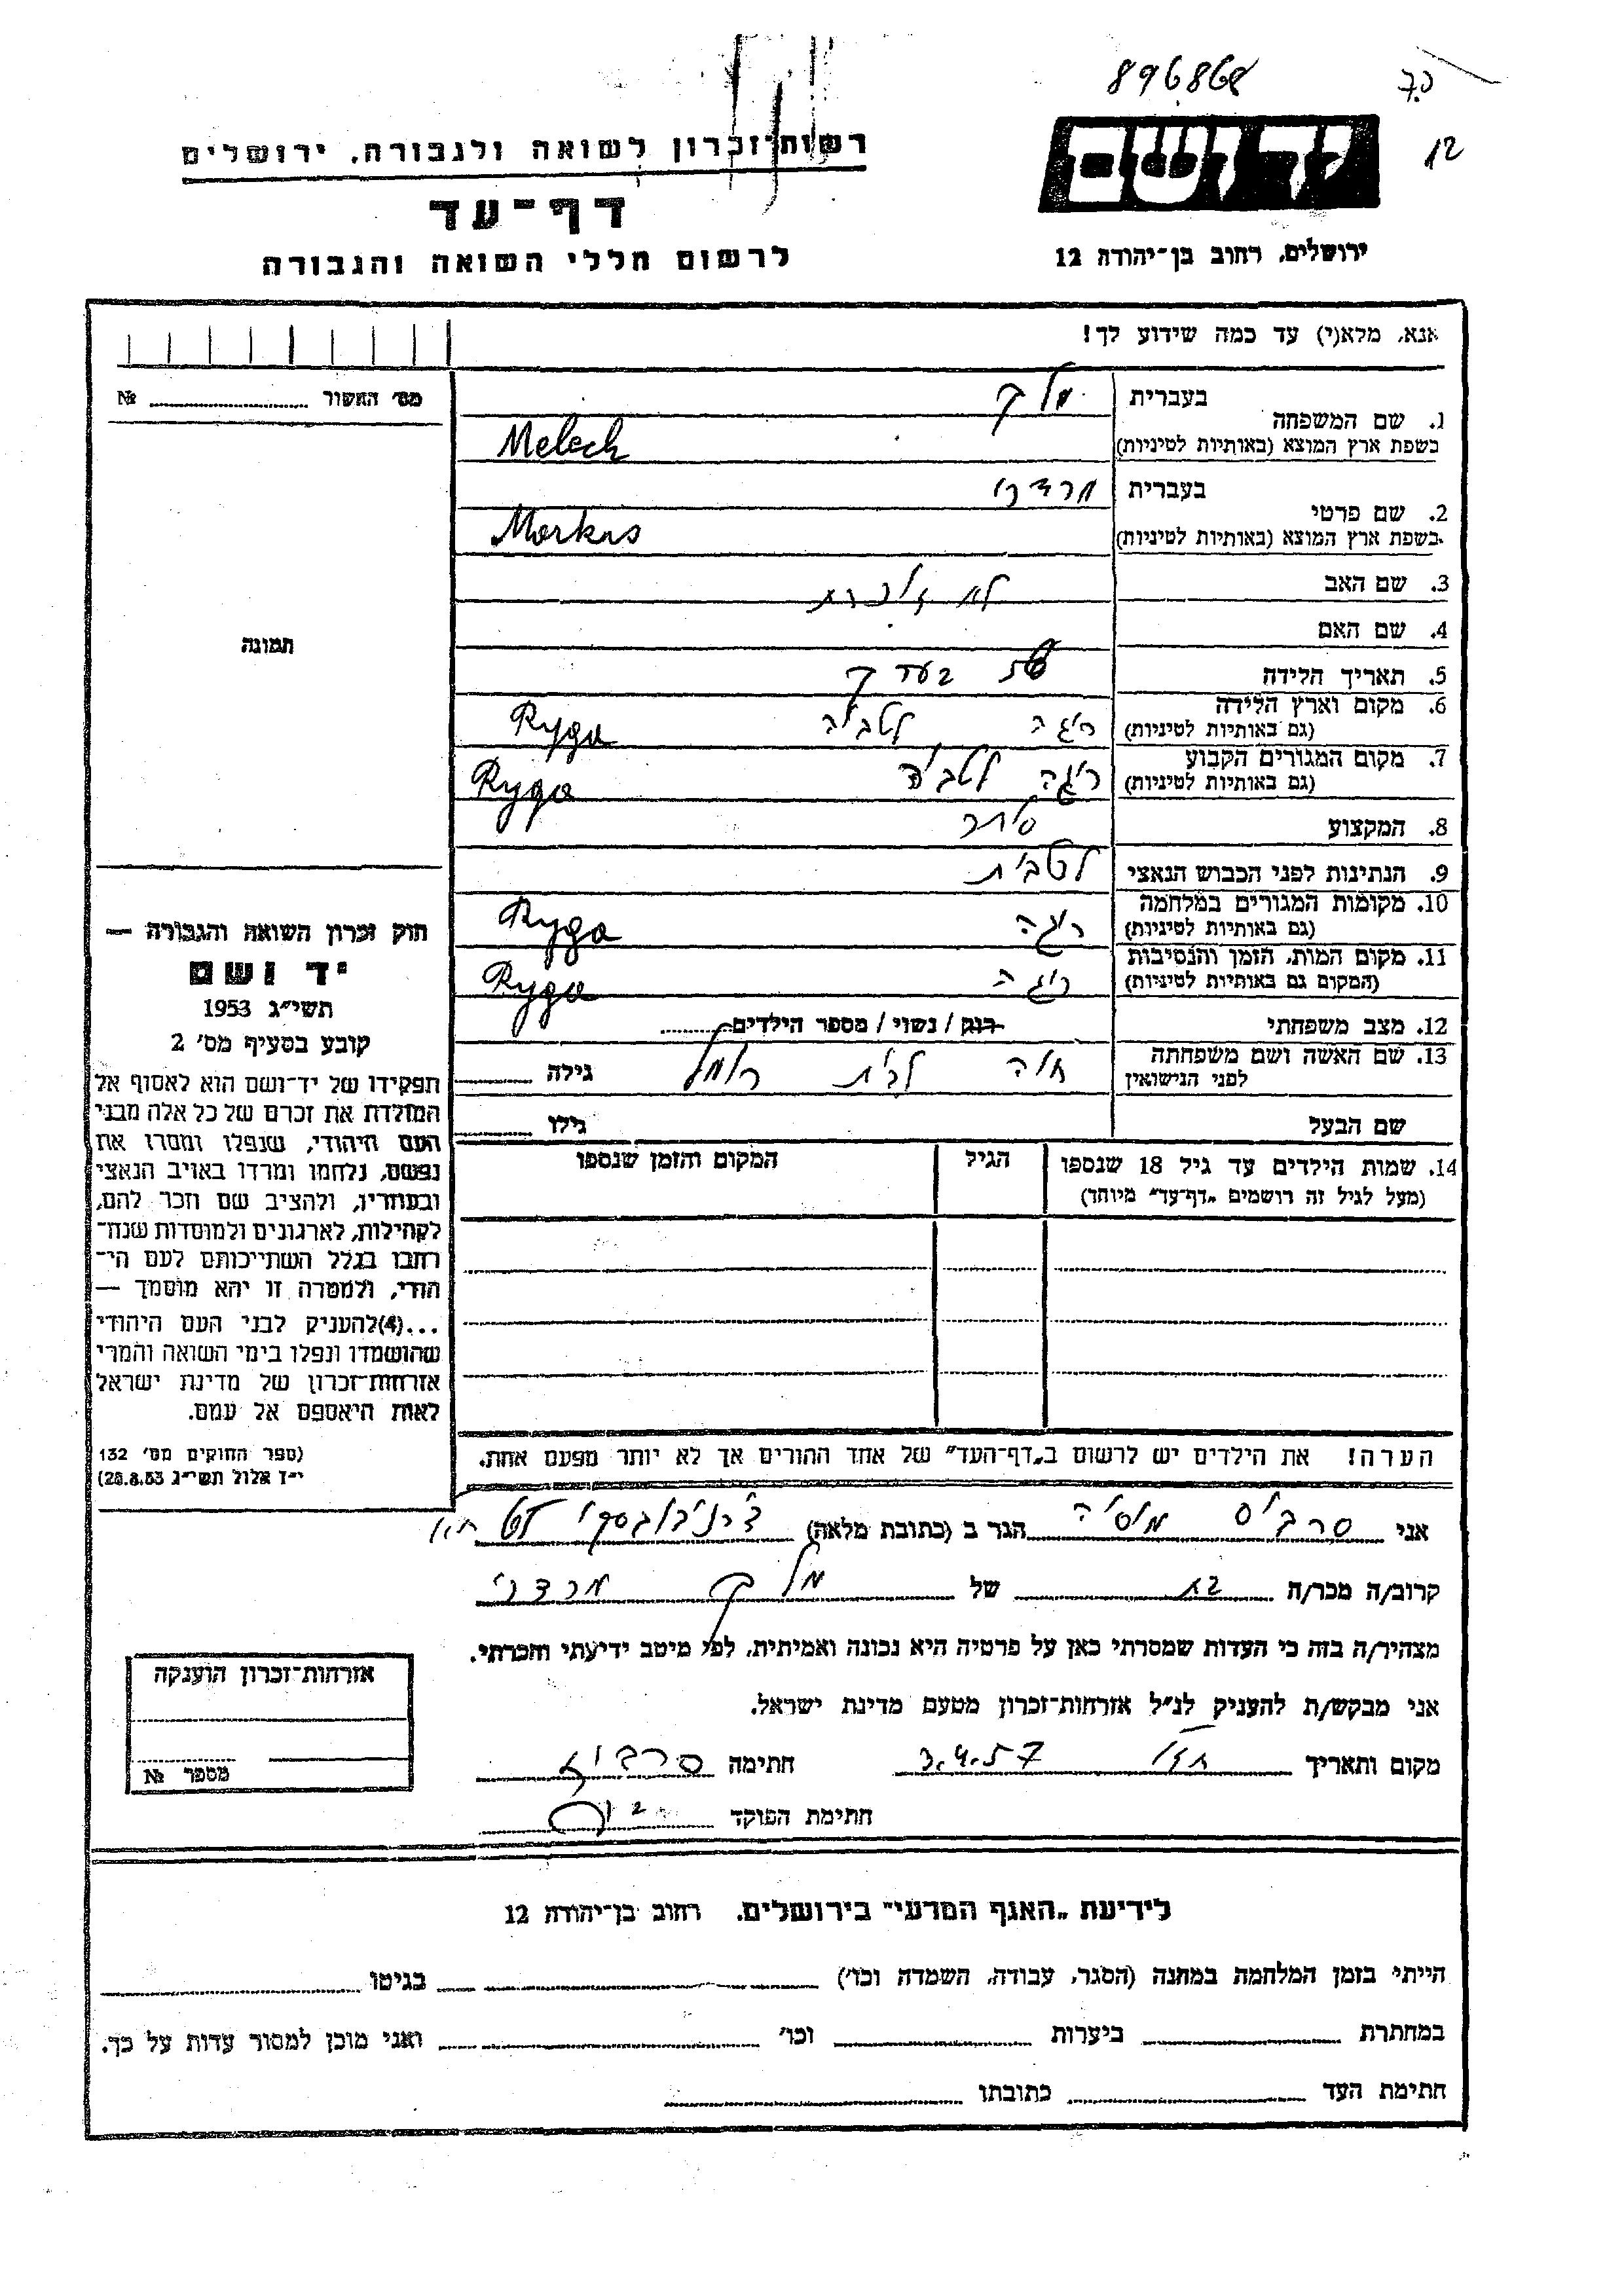 896868
70
12
רשות־זכרון לשואה ולגבורה, ירושלים
יד ושם
דף־עד
לרשום חללי השואה והגבורה
ירושלים, רחוב בן־יהודה 12
אנא, מלא(י) עד כמה שידוע לך!
מס׳ האשור № 
1. שם המשפחה בעברית מלך
בשפת ארץ המוצא (באותיות לטיניות) Melech
2. שם פרטי בעברית מרדכי
בשפת ארץ המוצא (באותיות לטיניות) Morkus
3. שם האב לא זוכרת
4. שם האם
תמונה
5. תאריך הלידה בערך
6. מקום וארץ הלידה (גם באותיות לטיניות) ריגה לטביה Ryga
7. מקום המגורים הקבוע (גם באותיות לטיניות) ריגה לטביה Ryga
8. המקצוע סוחר
9. הנתינות לפני הכבוש הנאצי לטבית
10. מקומות המגורים במלחמה (גם באותיות לטיניות) ריגה Ryga
11. מקום המות, הזמן והנסיבות (המקום גם באותיות לטיניות) ריגה Ryga
12. מצב משפחתי רווק / נשוי / מספר הילדים
13. שם האשה ושם משפחתה לפני הנישואין חיה לבית גילה
שם הבעל גילו
14. שמות הילדים עד גיל 18 שנספו (מעל לגיל זה רושמים „דף־עד״ מיוחד) הגיל המקום והזמן שנספו
הערה! את הילדים יש לרשום ב„דף־העד״ של אחד ההורים אך לא יותר מפעם אחת.
חוק זכרון השואה והגבורה —
יד ושם
תשי״ג 1953
קובע בסעיף מס׳ 2
תפקידו של יד־ושם הוא לאסוף אל
המולדת את זכרם של כל אלה מבני
העם היהודי, שנפלו ומסרו את
נפשם, נלחמו ומרדו באויב הנאצי
ובעוזריו, ולהציב שם וזכר להם,
לקהילות, לארגונים ולמוסדות שנח־
רבו בגלל השתייכותם לעם הי־
הודי, ולמטרה זו יהא מוסמך —
...(4)להעניק לבני העם היהודי
שהושמדו ונפלו בימי השואה והמרי
אזרחות־זכרון של מדינת ישראל
לאות היאספם אל עמם.
(ספר החוקים מס׳ 132
י״ז אלול תשי״ג 28.8.53)
אני הגר ב (כתובת מלאה)
קרוב/ה מכר/ה בת של מלך מרדכי
מצהיר/ה בזה כי העדות שמסרתי כאן על פרטיה היא נכונה ואמיתית, לפי מיטב ידיעתי והכרתי.
אני מבקש/ת להעניק לנ״ל אזרחות־זכרון מטעם מדינת ישראל.
מקום ותאריך 3.4.57 חתימה
חתימת הפוקד
אזרחות־זכרון הוענקה
מספר №
לידיעת „האגף המדעי״ בירושלים, רחוב בן־יהודה 12
הייתי בזמן המלחמה במחנה (הסגר, עבודה, השמדה וכו׳) בגיטו
במחתרת ביערות וכו׳ ואני מוכן למסור עדות על כך.
חתימת העד כתובתו